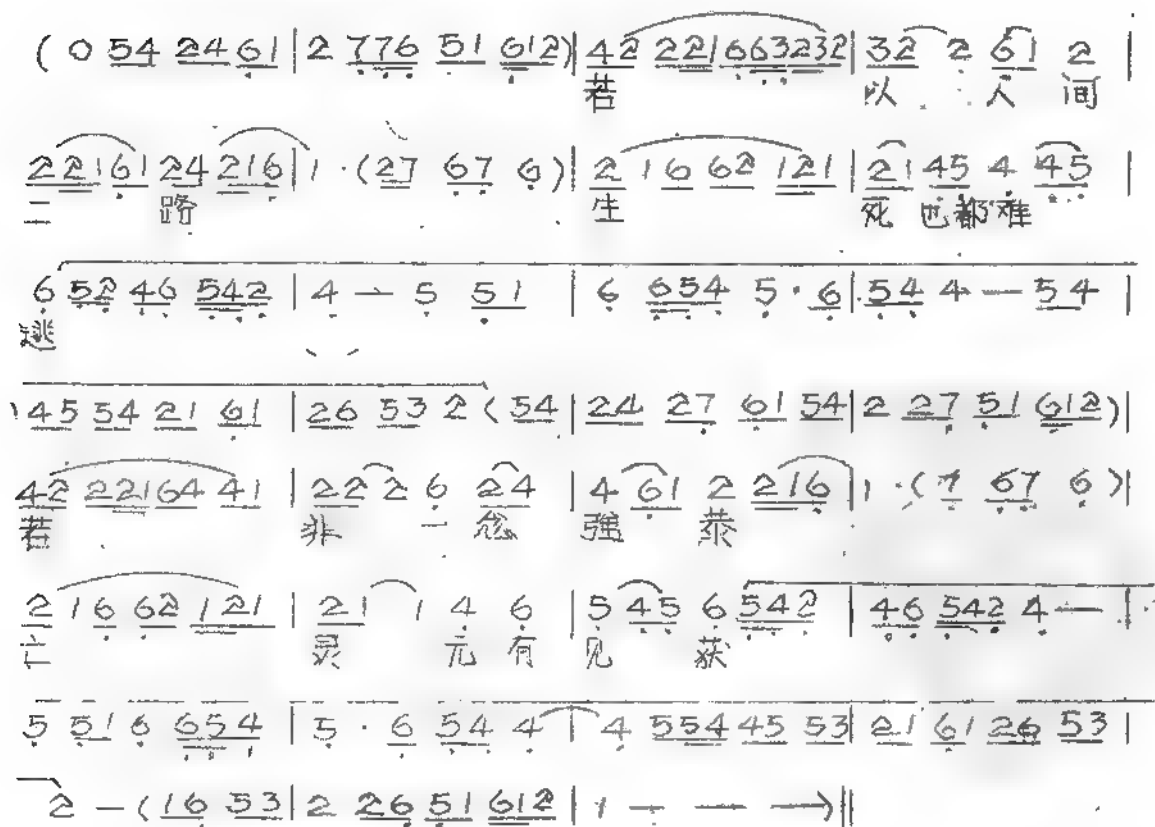 ( 0 54 24 61 | 2 776 51 612) | 42 221 663232 | 32 2 61 2 |
若 以 人 间
2216 1 24 216 | 1 · (27 67 6) | 2 16 62 121 | 21 45 4 45 |
二 路 生 死 也 都 难
6 52 46 542 | 4 — 5 51 | 6 654 5 · 6 | 54 4 — 54 |
逃
45 54 21 61 | 26 53 2 (54 | 24 27 61 54 | 2 27 51 612) |
42 22164 41 | 22 2 6 24 | 4 61 2 216 | 1 · (7 67 6) |
若 非 一 念 强
2 16 62 121 | 21 1 4 6 | 5 45 6 542 | 46 542 4 — |
亡 灵 元 有 见 获
5 51 6 654 | 5 · 6 54 4 | 4 554 45 53 | 21 61 26 53 |
2 — (16 53 | 2 26 51 612 | 1 — — —) ‖